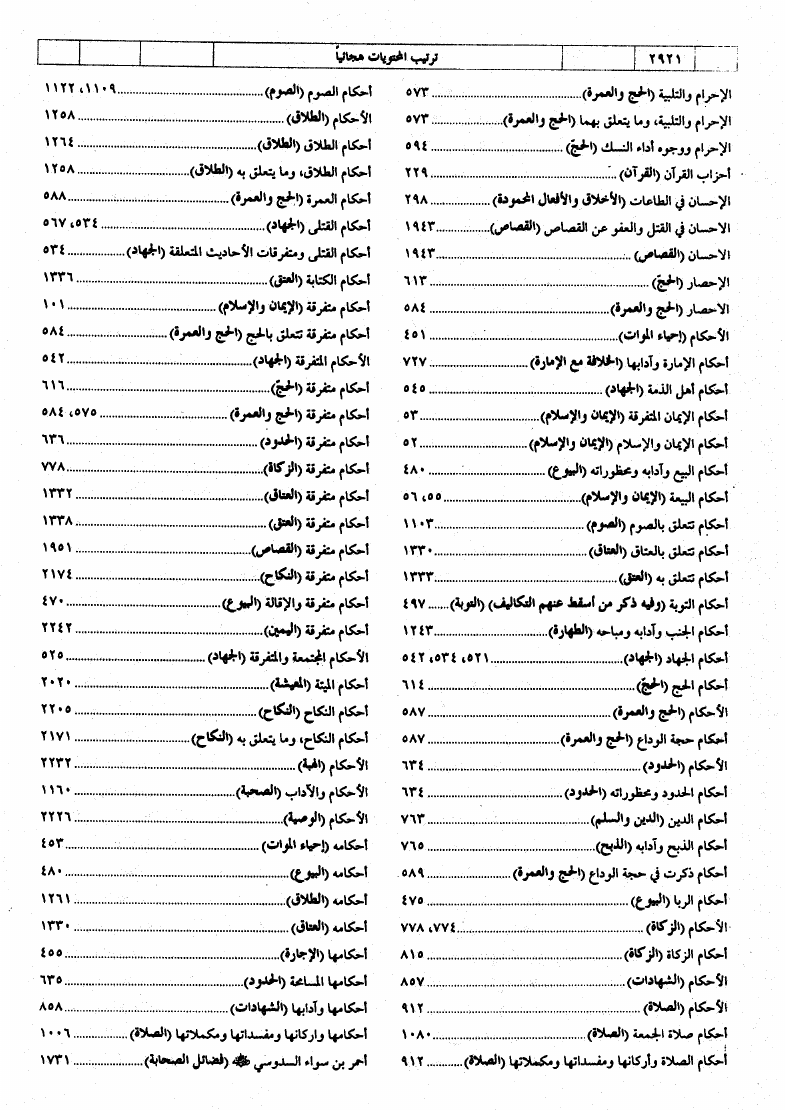 ٢٩٢١
ترتيب المحتويات هجائياً
الإحرام والتلبية (الحج والعمرة) ........ ٥٧٣
الإحرام والتلبية، وما يتعلق بهما (الحج والعمرة) ........ ٥٧٣
الإحرام ووجوه أداء النسك (الحجّ) ........ ٥٩٤
أحزاب القرآن (القرآن) ........ ٢٢٩
الإحسان في الطاعات (الأخلاق والأفعال المحمودة) ........ ٢٩٨
الاحسان في القتل والعفو عن القصاص (القصاص) ........ ١٩٤٣
الاحسان (القصاص) ........ ١٩٤٣
الإحصار (الحجّ) ........ ٦١٣
الاحصار (الحج والعمرة) ........ ٥٨٤
الأحكام (إحياء الموات) ........ ٤٥١
أحكام الإمارة وآدابها (الخلافة مع الإمارة) ........ ٧٢٧
أحكام أهل الذمة (الجهاد) ........ ٥٤٥
أحكام الإيمان المتفرقة (الإيمان والإسلام) ........ ٥٣
أحكام الإيمان والإسلام (الإيمان والإسلام) ........ ٥٢
أحكام البيع وآدابه ومحظوراته (البيوع) ........ ٤٨٠
أحكام البيعة (الإيمان والإسلام) ........ ٥٥، ٥٦
أحكام تتعلق بالصوم (الصوم) ........ ١١٠٣
أحكام تتعلق بالعتاق (العتاق) ........ ١٣٣٠
أحكام تتعلق به (العتق) ........ ١٣٣٣
أحكام التوبة (وفيه ذكر من أسقط عنهم التكاليف) (التوبة) ........ ٤٩٧
أحكام الجنب وآدابه ومباحه (الطهارة) ........ ١٢٤٣
أحكام الجهاد (الجهاد) ........ ٥٢١، ٥٣٤، ٥٤٢
أحكام الحج (الحجّ) ........ ٦١٤
الأحكام (الحج والعمرة) ........ ٥٨٧
أحكام حجة الوداع (الحج والعمرة) ........ ٥٨٧
الأحكام (الحدود) ........ ٦٣٤
أحكام الحدود ومحظوراته (الحدود) ........ ٦٣٤
أحكام الدين (الدين والسلم) ........ ٧٦٣
أحكام الذبح وآدابه (الذبح) ........ ٧٦٥
أحكام ذكرت في حجة الوداع (الحج والعمرة) ........ ٥٨٩
أحكام الربا (البيوع) ........ ٤٧٥
الأحكام (الزكاة) ........ ٧٧٤، ٧٧٨
أحكام الزكاة (الزكاة) ........ ٨١٥
الأحكام (الشهادات) ........ ٨٥٧
الأحكام (الصلاة) ........ ٩١٢
أحكام صلاة الجمعة (الصلاة) ........ ١٠٨٠
أحكام الصلاة وأركانها ومفسداتها ومكملاتها (الصلاة) ........ ٩١٢
أحكام الصوم (الصوم) ........ ١١٠٩، ١١٢٢
الأحكام (الطلاق) ........ ١٢٥٨
أحكام الطلاق (الطلاق) ........ ١٢٦٤
أحكام الطلاق، وما يتعلق به (الطلاق) ........ ١٢٥٨
أحكام العمرة (الحج والعمرة) ........ ٥٨٨
أحكام القتلى (الجهاد) ........ ٥٣٤، ٥٦٧
أحكام القتلى ومتفرقات الأحاديث المتعلقة (الجهاد) ........ ٥٣٤
أحكام الكتابة (العتق) ........ ١٣٣٦
أحكام متفرقة (الإيمان والإسلام) ........ ١٠١
أحكام متفرقة تتعلق بالحج (الحج والعمرة) ........ ٥٨٤
الأحكام المتفرقة (الجهاد) ........ ٥٤٢
أحكام متفرقة (الحجّ) ........ ٦١٦
أحكام متفرقة (الحج والعمرة) ........ ٥٧٥، ٥٨٤
أحكام متفرقة (الحدود) ........ ٦٣٦
أحكام متفرقة (الزكاة) ........ ٧٧٨
أحكام متفرقة (العتاق) ........ ١٣٣٢
أحكام متفرقة (العتق) ........ ١٣٣٨
أحكام متفرقة (القصاص) ........ ١٩٥١
أحكام متفرقة (النكاح) ........ ٢١٧٤
أحكام متفرقة والإقالة (البيوع) ........ ٤٧٠
أحكام متفرقة (اليمين) ........ ٢٢٤٢
الأحكام المجتمعة والمتفرقة (الجهاد) ........ ٥٢٥
أحكام الميتة (المعيشة) ........ ٢٠٢٠
أحكام النكاح (النكاح) ........ ٢٢٠٥
أحكام النكاح، وما يتعلق به (النكاح) ........ ٢١٧١
الأحكام (الهبة) ........ ٢٢٣٢
الأحكام والآداب (الصحبة) ........ ١١٦٠
الأحكام (الوصية) ........ ٢٢٢٦
أحكامه (إحياء الموات) ........ ٤٥٣
أحكامه (البيوع) ........ ٤٨٠
أحكامه (الطلاق) ........ ١٢٦١
أحكامه (العتاق) ........ ١٣٣٠
أحكامها (الإجارة) ........ ٤٥٥
أحكامها المسامحة (الحدود) ........ ٦٣٥
أحكامها وآدابها (الشهادات) ........ ٨٥٨
أحكامها واركانها ومفسداتها ومكملاتها (الصلاة) ........ ١٠٠٦
أحمر بن سواء السدوسي ﷺ (فضائل الصحابة) ........ ١٧٣١